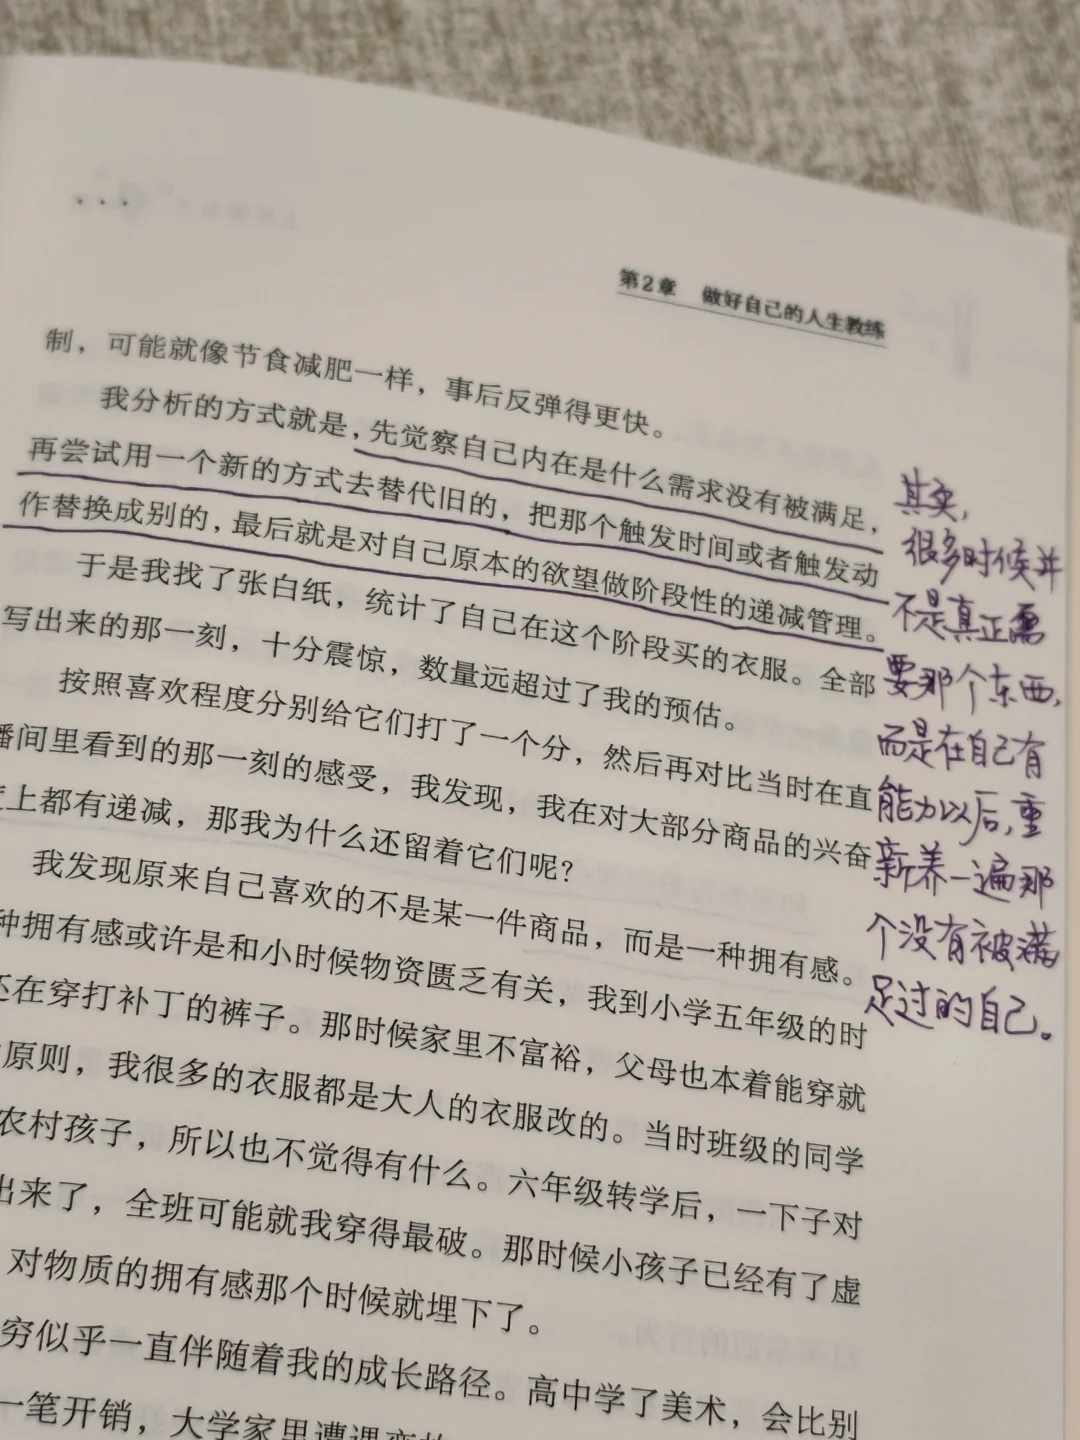 第2章 做好自己的人生教练
制，可能就像节食减肥一样，事后反弹得更快。
我分析的方式就是，先觉察自己内在是什么需求没有被满足，
再尝试用一个新的方式去替代旧的，把那个触发时间或者触发动
作替换成别的，最后就是对自己原本的欲望做阶段性的递减管理。
于是我找了张白纸，统计了自己在这个阶段买的衣服。全部
写出来的那一刻，十分震惊，数量远超过了我的预估。
按照喜欢程度分别给它们打了一个分，然后再对比当时在直
播间里看到的那一刻的感受，我发现，我在对大部分商品的兴奋
度上都有递减，那我为什么还留着它们呢？
我发现原来自己喜欢的不是某一件商品，而是一种拥有感。
种拥有感或许是和小时候物资匮乏有关，我到小学五年级的时
还在穿打补丁的裤子。那时候家里不富裕，父母也本着能穿就
原则，我很多的衣服都是大人的衣服改的。当时班级的同学
农村孩子，所以也不觉得有什么。六年级转学后，一下子对
出来了，全班可能就我穿得最破。那时候小孩子已经有了虚
对物质的拥有感那个时候就埋下了。
穷似乎一直伴随着我的成长路径。高中学了美术，会比别
一笔开销，大学家里遭遇变故
其实，
很多时候并
不是真正需
要那个东西，
而是在自己有
能力以后，重
新养一遍那
个没有被满
足过的自己。